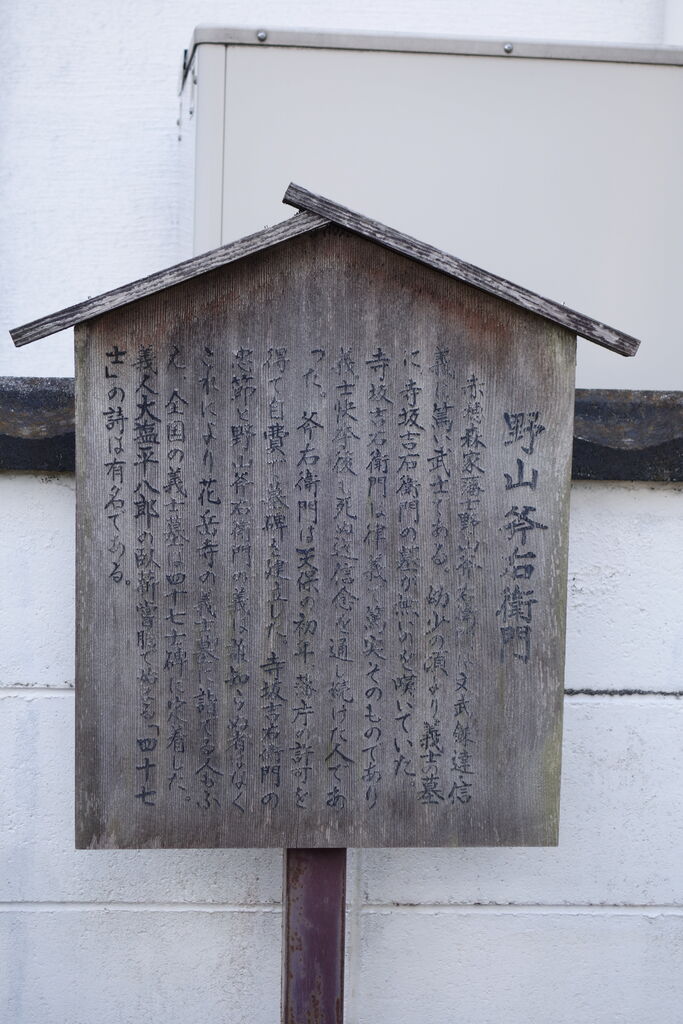 野山斧右衛門
赤穂森家藩士野山斧右衛門は文武練達信
義に篤い武士である。幼少の頃より義士の墓
に寺坂吉右衛門の墓が無いのを嘆いていた。
寺坂吉右衛門は律義で篤実そのものであり
義士快挙後も死ぬ迄信念を通し続けた人であ
った。斧右衛門は天保の初年藩庁の許可を
得て自費で墓碑を建立した。寺坂吉右衛門の
忠節と野山斧右衛門の義は誰知らぬ者はなく
これにより花岳寺の義士墓に詣でる人もふ
え全国の義士墓は四十七士碑に定着した。
義人大塩平八郎の臥薪嘗胆で始まる「四十七
士」の詩は有名である。